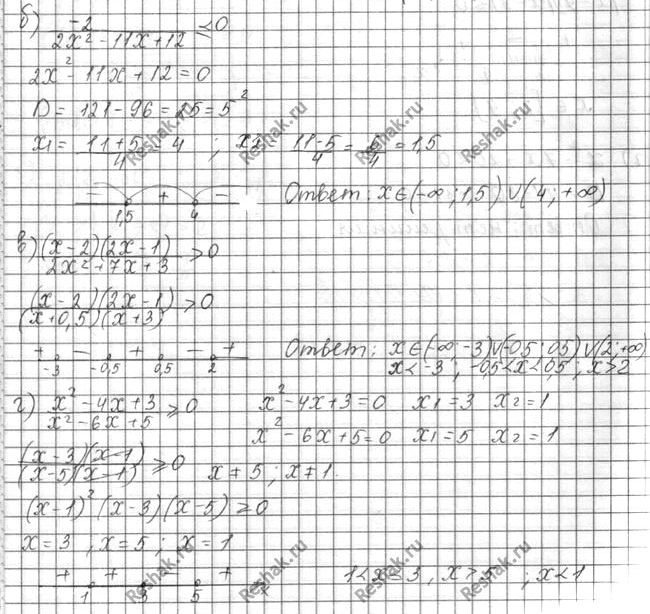 б) -2 / (2x² - 11x + 12) < 0
2x² - 11x + 12 = 0
D = 121 - 96 = 25 = 5²
x1 = (11 + 5)/4 = 4 ; x2 = (11 - 5)/4 = 6/4 = 1,5
- 1,5 + 4 - Ответ: x ∈ (-∞; 1,5) ∪ (4; +∞)
в) (x - 2)(2x - 1) / (2x² + 7x + 3) > 0
(x - 2)(2x - 1) / (x + 0,5)(x + 3) > 0
+ -3 - -0,5 + 0,5 - 2 + Ответ: x ∈ (-∞; -3) ∪ (-0,5; 0,5) ∪ (2; +∞)
x < -3 ; -0,5 < x < 0,5 ; x > 2
г) (x² - 4x + 3) / (x² - 6x + 5) ≥ 0 x² - 4x + 3 = 0 x1 = 3 x2 = 1
x² - 6x + 5 = 0 x1 = 5 x2 = 1
(x - 3)(x - 1) / (x - 5)(x - 1) ≥ 0 x ≠ 5 ; x ≠ 1
(x - 1)² (x - 3)(x - 5) ≥ 0
x = 3 , x = 5 ; x = 1
+ 1 + 3 - 5 + 1 < x ≤ 3 , x > 5 ; x < 1
Reshak.ru
Reshak.ru
Reshak.ru
Reshak.ru
Reshak.ru
Reshak.ru